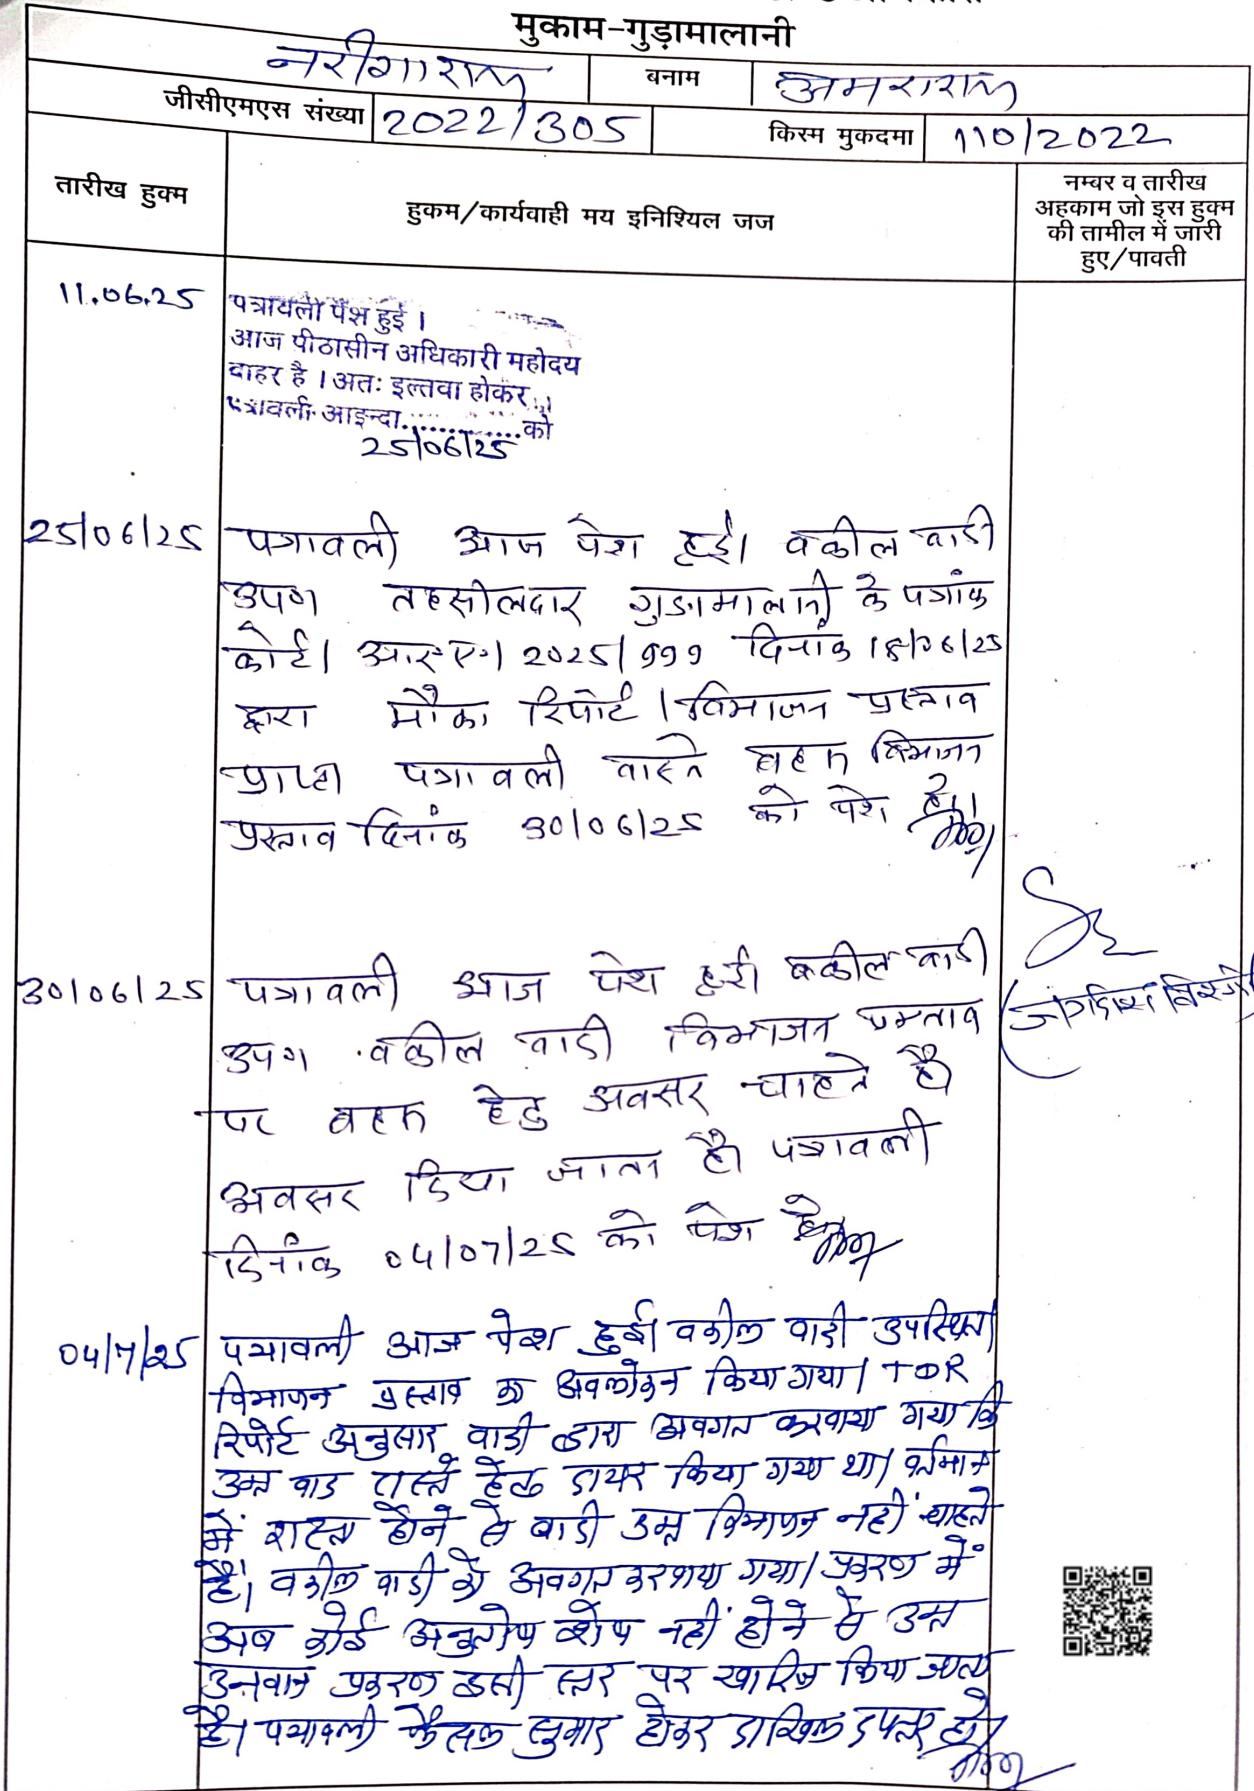 मुकाम-गुड़ामालानी
नरींगाराम बनाम अमराराम
जीसीएमएस संख्या 2022/305 किस्म मुकदमा 110/2022
तारीख हुक्म
हुकम/कार्यवाही मय इनिश्यिल जज
नम्बर व तारीख
अहकाम जो इस हुक्म
की तामील में जारी
हुए/पावती
11.06.25
पत्रावली पेश हुई ।
आज पीठासीन अधिकारी महोदय
बाहर है । अतः इल्तवा होकर
पत्रावली आइन्दा..............को
25/06/25
25/06/25 पत्रावली आज पेश हुई। वकील वादी
उप० तहसीलदार गुडामालानी के पत्रांक
कोर्ट/आर०ए०/2025/999 दिनांक 18/06/25
द्वारा मौका रिपोर्ट/विभाजन प्रस्ताव
प्राप्त। पत्रावली वास्ते बहस विभाजन
प्रस्ताव दिनांक 30/06/25 को पेश हो।
30/06/25 पत्रावली आज पेश हुई। वकील वादी
उप०। वकील वादी विभाजन प्रस्ताव
पर बहस हेतु अवसर चाहते है।
अवसर दिया जाता है। पत्रावली
दिनांक 04/07/25 को पेश हो।
(जगदीश
04/7/25 पत्रावली आज पेश हुई। वकील वादी उपस्थित।
विभाजन प्रस्ताव का अवलोकन किया गया। TDR
रिपोर्ट अनुसार वादी द्वारा अवगत करवाया गया कि
उक्त वाद रास्ते हेतु दायर किया गया था। वर्तमान
में रास्ता होने से वादी उक्त विभाजन नहीं चाहते
है। वकील वादी को अवगत करवाया गया। प्रकरण में
अब कोई अनुतोष शेष नहीं होने से उक्त
उनवान प्रकरण इसी स्तर पर खारिज किया जाता
है। पत्रावली फैसल शुमार होकर दाखिल दफ्तर हो।